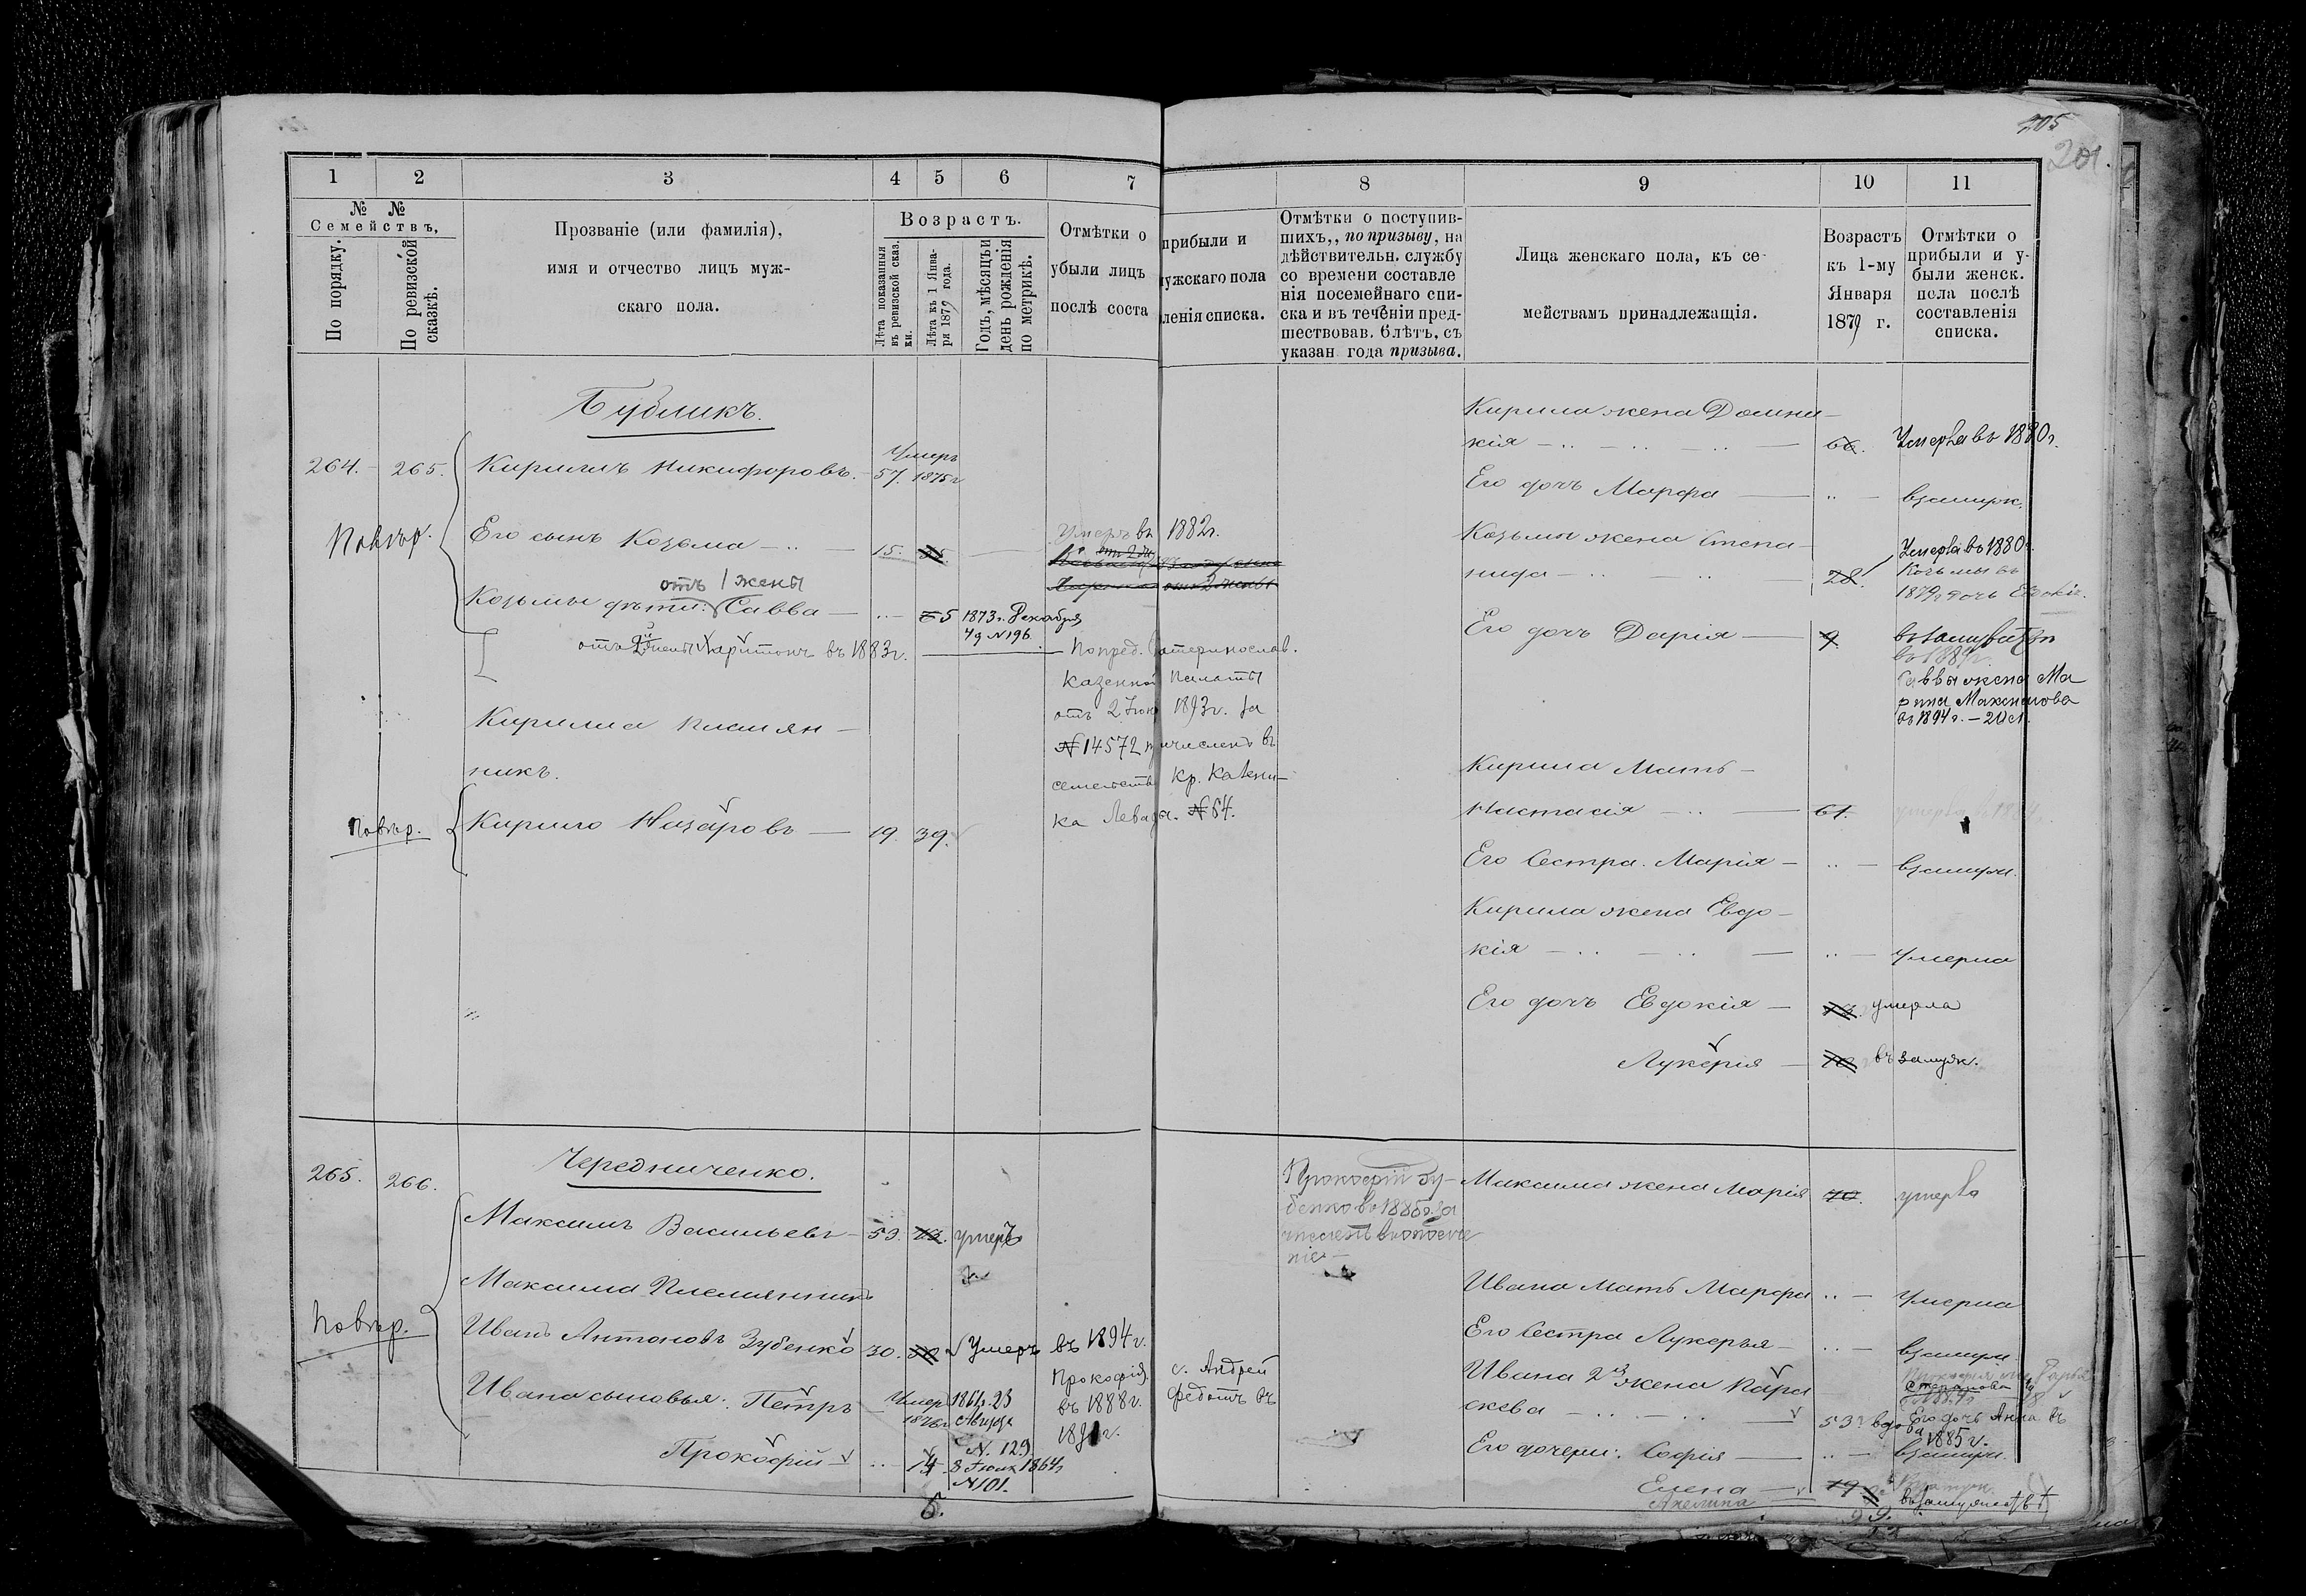 205
201.
1 2 3 4 5 6 7
№ №
Семействъ,
По порядку.
По ревизской сказкѣ.
Прозваніе (или фамилія),
имя и отчество лицъ муж-
скаго пола.
Возрастъ.
Лѣта показанныя въ ревизской сказ. ки.
Лѣта къ 1 Янва- ря 1879 года.
Годъ, мѣсяцъ и день рожденія по метрикѣ.
Отмѣтки о
убыли лицъ
послѣ соста
Бубликъ.
264. 265. Кириллъ Никифоровъ. 57. Умеръ 1875г
Повѣр.
Его сынъ Козьма 15.
Умеръ въ 1882г.
отъ 1 жены
Козьмы дѣти: Савва 5 1873г. Декабря
4д N196.
отъ 2й жены Харитонъ въ 1883г.
По пред. Екатеринослав.
Казенной Палаты
отъ 2 Іюня 1893г. за
№14572 причисленъ въ
семейство Кр. Казени-
ка Левады. №54.
Кирилла племян-
никъ.
Повѣр. Кирило Назаровъ 19. 39.
265. 266. Чередниченко.
Максимъ Васильевъ 53. умеръ
Максима Племянникъ
Повѣр.
Иванъ Антоновъ Зубенко 30. Умеръ въ 1894г.
Ивана сыновья: Петръ Умер 1876г 1861г. 23
N. 129.
Прокофій 14 8 Іюля 1864г
N101.
Прокофія с. Андрей
въ 1888г. Федотъ въ
6.
8 9 10 11
прибыли и
мужскаго пола
ленія списка.
Отмѣтки о поступив-
шихъ,, по призыву, на
дѣйствительн. службу
со времени составле
нія посемейнаго спи-
ска и въ теченіи пред-
шествовав. 6 лѣтъ, съ
указан года призыва.
Лица женскаго пола, къ се-
мействамъ принадлежащія.
Возрастъ
къ 1-му
Января
1879 г.
Отмѣтки о
прибыли и у-
были женск.
пола послѣ
составленія
списка.
Кирила жена Домни-
кія 66. Умерла въ 1880г.
Его дочь Марфа взамуж.
Козьмы жена Степа-
нида 28. Умерла въ 1880г.
Козьмы въ
1879г дочь Евдокія.
Его дочь Дарія 9. въ замужество
въ 1889г.
Саввы жена Ма
рина Максимова
въ 1894г. — 20 л.
Кирила Мать
Настасія 61.
Его Сестра. Марія взамуж.
Кирила жена Евдо-
кія Умерла
Его дочь Евдокія умерла
Лукерія въ замуж.
Прокофій Зу-
бенко въ 1885г. за
численъ въ ополче
ніе
Максима жена Марія 70. умерла
Ивана Мать Марфа Умерла
Его Сестра Лукерья взамуж
Ивана 2я жена Пара
скева 53 вдо
ва
Степанова
Его дочь Анна въ
1885г.
Его дочери: Софія взамуж.
Елена 19
Акелина